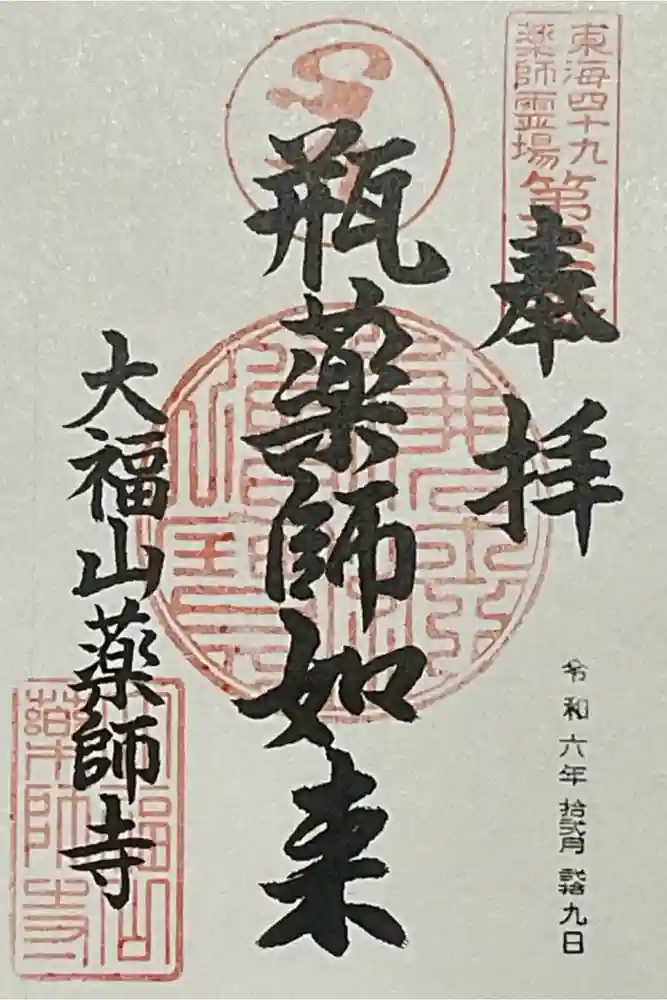 東海四十九
薬師霊場
第
奉拝
令和六年拾弐月弐拾九日
瓶薬師如来
大福山薬師寺
大福山
薬師寺